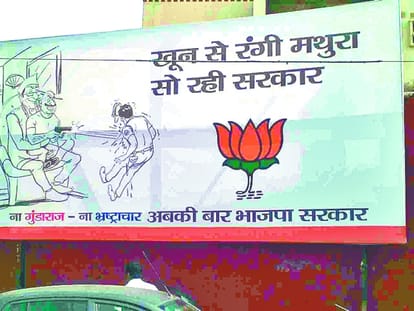 खून से रंगी मथुरा
सो रही सरकार
ना गुंडाराज - ना भ्रष्ट्राचार अबकी बार भाजपा सरकार